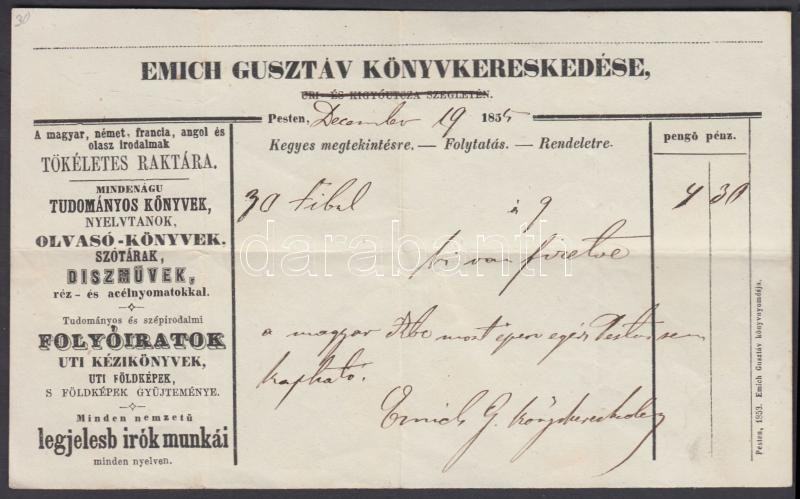 30
EMICH GUSZTÁV KÖNYVKERESKEDÉSE,
URI- ÉS KIGYÓUTCZA SZEGLETÉN.
Pesten, December 19 1855
Kegyes megtekintésre. — Folytatás. — Rendeletre.
pengő pénz.
A magyar, német, francia, angol és
olasz irodalmak
TÖKÉLETES RAKTÁRA.
MINDENÁGU
TUDOMÁNYOS KÖNYVEK,
NYELVTANOK,
OLVASÓ-KÖNYVEK,
SZÓTÁRAK,
DISZMŰVEK,
réz- és acélnyomatokkal.
Tudományos és szépirodalmi
FOLYÓIRATOK
UTI KÉZIKÖNYVEK,
UTI FÖLDKÉPEK,
S FÖLDKÉPEK GYÜJTEMÉNYE.
Minden nemzetü
legjelesb irók munkái
minden nyelven.
30 Fibel à 9 4 30
ki van fizetve
a magyar Abc most épen egész Pesten sem
kapható.
Emich G. könyvkereskedő
Pesten, 1853. Emich Gusztáv könyvnyomdája.
darabanth.com